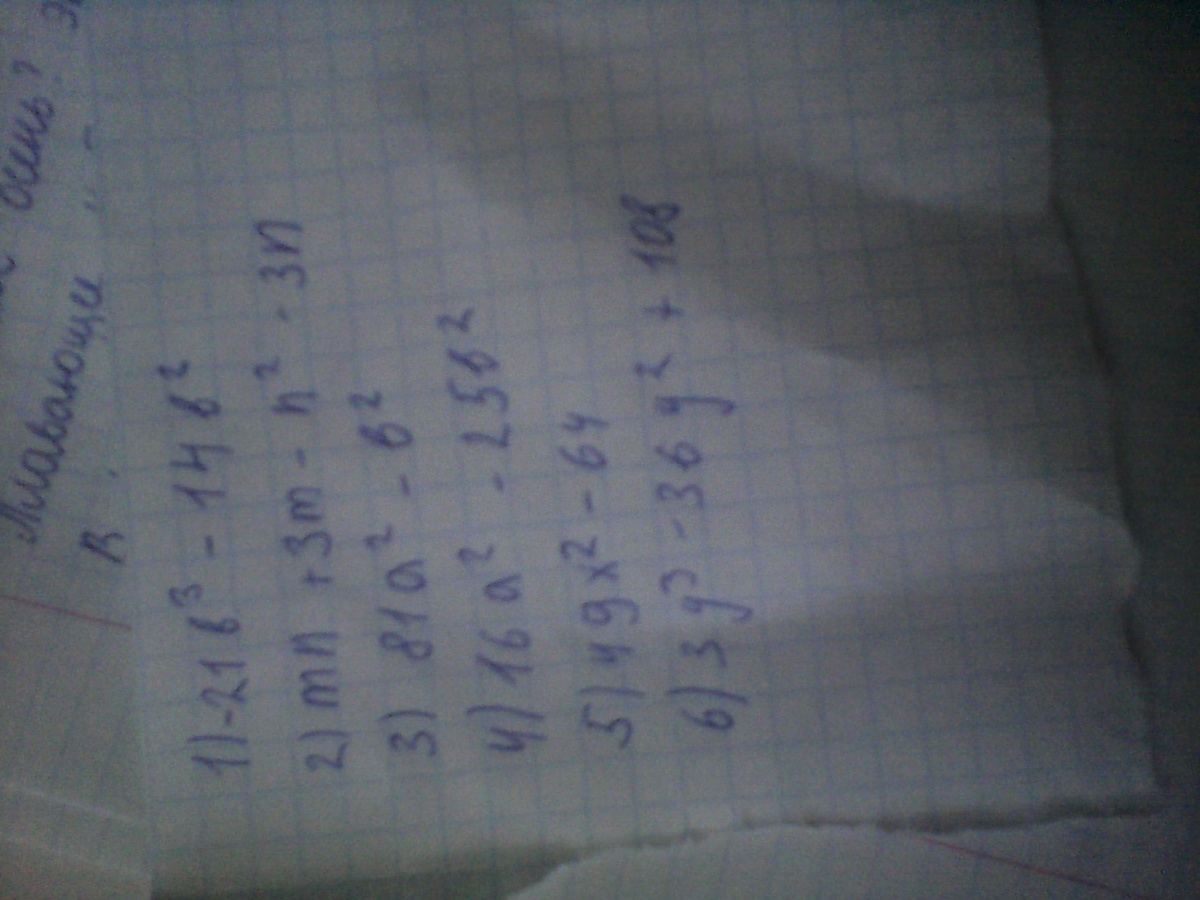 осень?
Плавающие " -
В.
1) -21в³ - 14в²
2) mn + 3m - n² - 3n
3) 81a² - в²
4) 16a² - 25в²
5) 49x² - 64
6) 3y³ - 36y² + 108